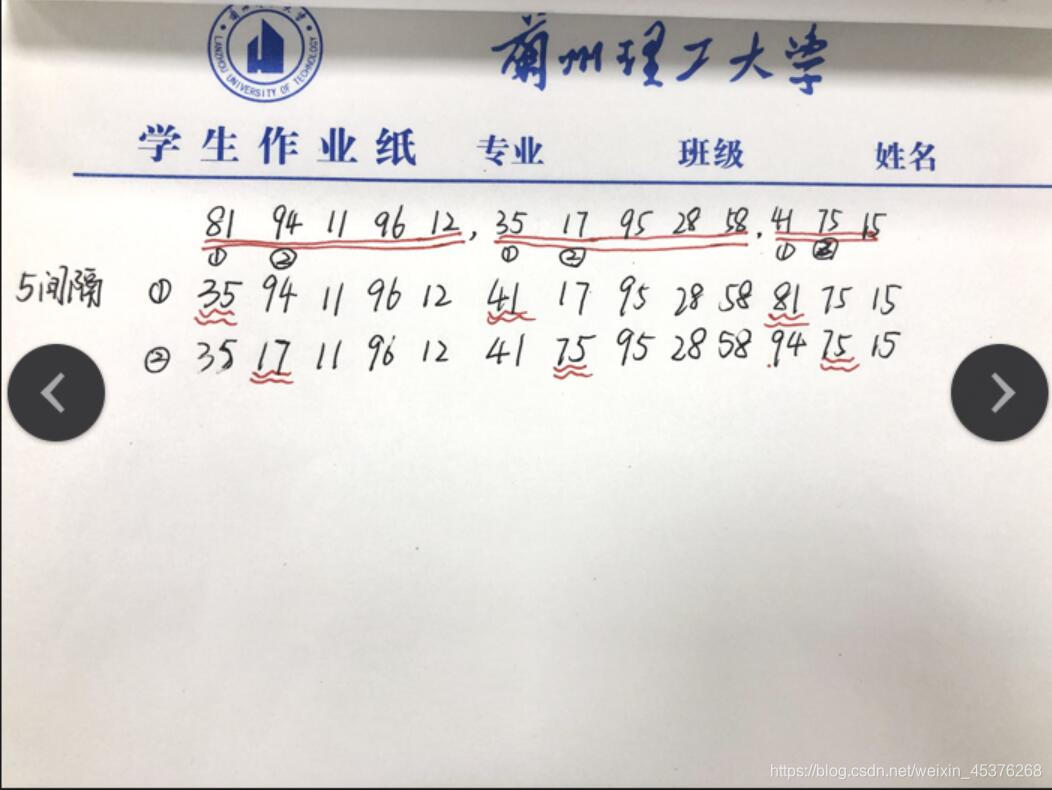 LANZHOU UNIVERSITY OF TECHNOLOGY
蘭州理工大学
学生作业纸 专业 班级 姓名
81 94 11 96 12, 35 17 95 28 58. 41 75 15
① ② ① ② ① ②
5间隔 ① 35 94 11 96 12 41 17 95 28 58 81 75 15
② 35 17 11 96 12 41 75 95 28 58 94 75 15
https://blog.csdn.net/weixin_45376268